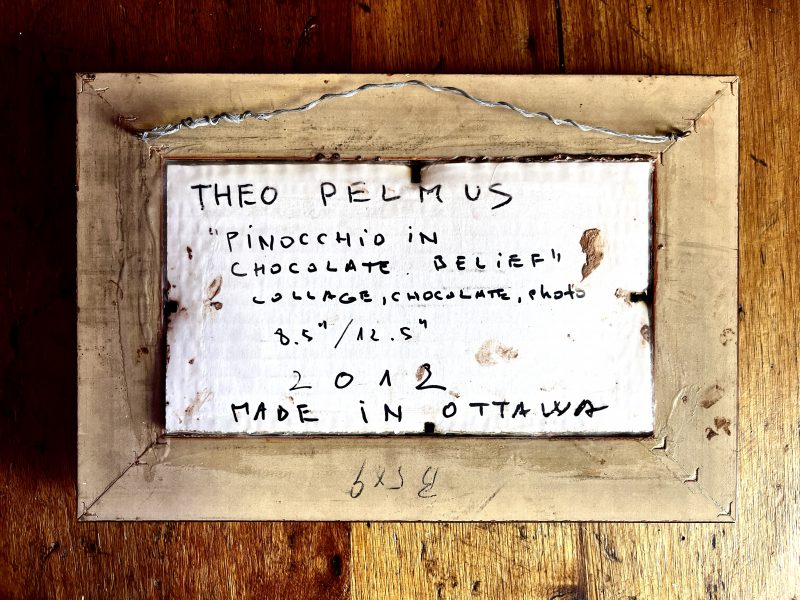 THEO PELMUS
"PINOCCHIO IN
CHOCOLATE BELIEF"
COLLAGE, CHOCOLATE, Photo
8.5"/12.5"
2012
MADE IN OTTAWA
B 5x9